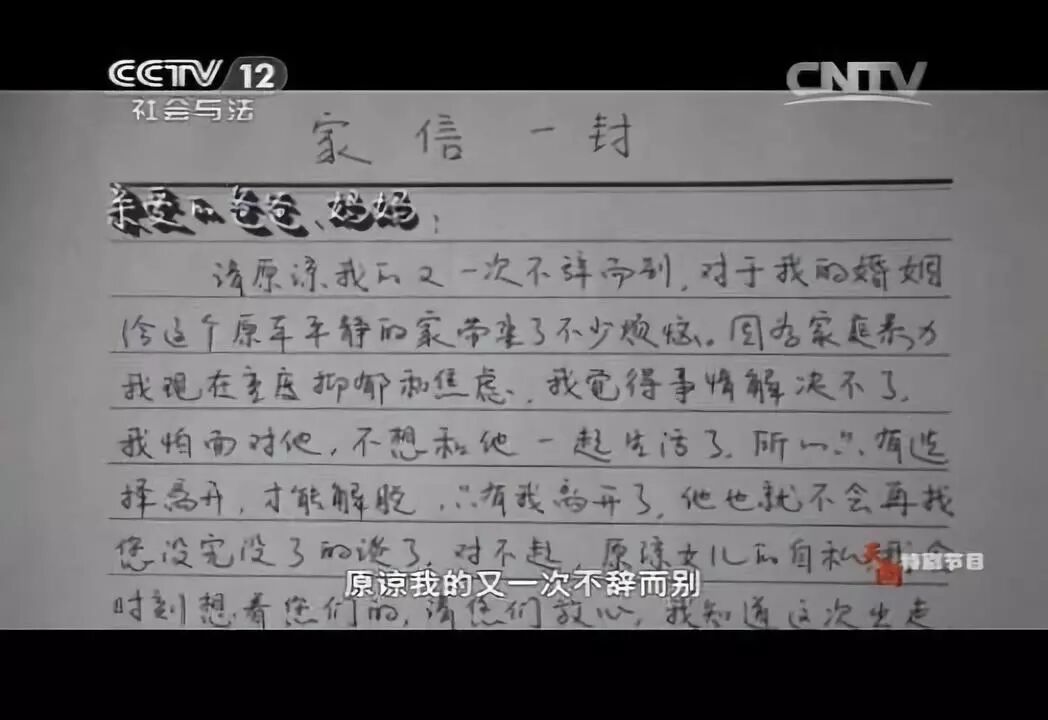 CCTV 12
社会与法
CNTV
家信一封
亲爱的爸爸、妈妈:
请原谅我的又一次不辞而别,对于我的婚姻
给这个原本平静的家带来了不少烦恼。因为家庭暴力
我现在重度抑郁和焦虑,我觉得事情解决不了,
我怕面对他,不想和他一起生活了,所以只有选
择离开,才能解脱,只有我离开了,他也就不会再找
您没完没了的谈了,对不起,原谅女儿的自私
天网
特别节目
原谅我的又一次不辞而别
时刻想着您们的,请您们放心,我知道这次出走